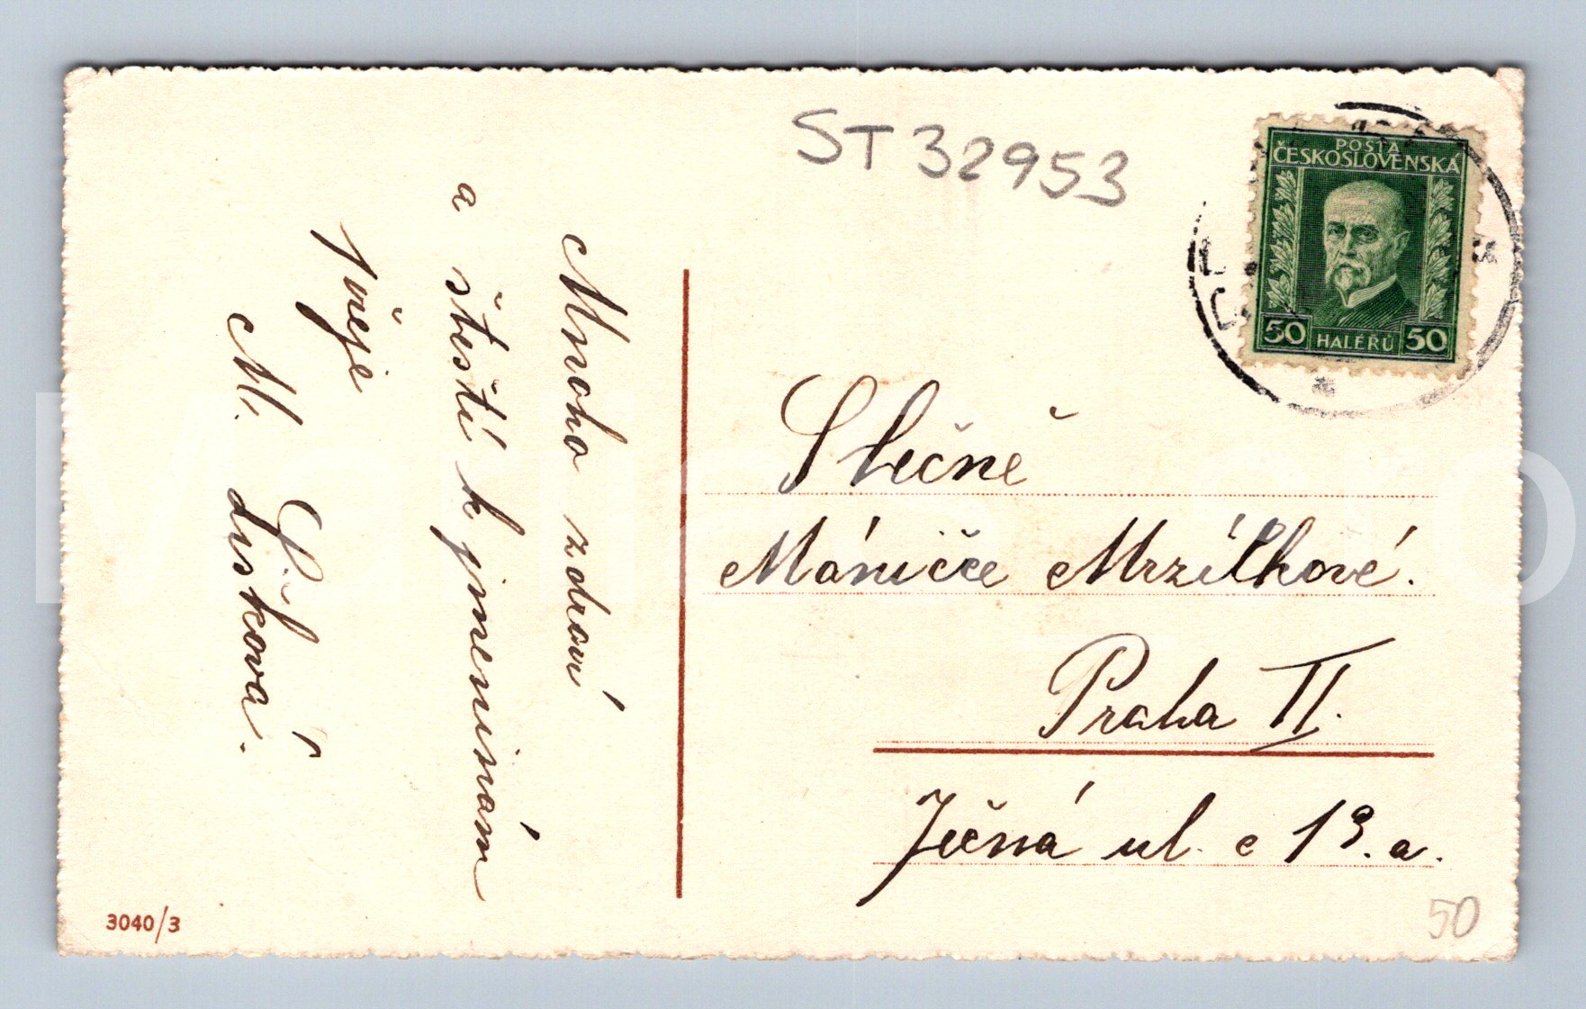 ST 32953
POŠTA
ČESKOSLOVENSKÁ
50 HALÉŘŮ 50
Mnoho zdraví
a štěstí k jmeninám
přeje
M. Lišková.
Slečně
Máničce Mrzílkové.
Praha II.
Ječná ul. č 13.a.
3040/3
50